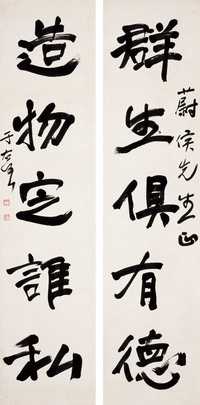 群生俱有德
蔚侯先生正
造物定誰私
于右任